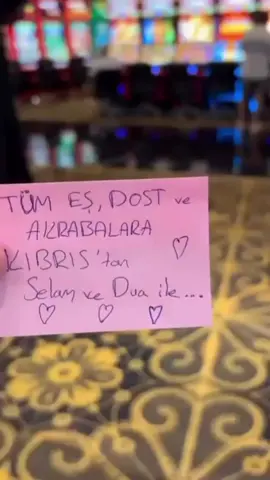 TÜM EŞ, DOST ve
AKRABALARA
KIBRIS'tan
Selam ve Dua ile...